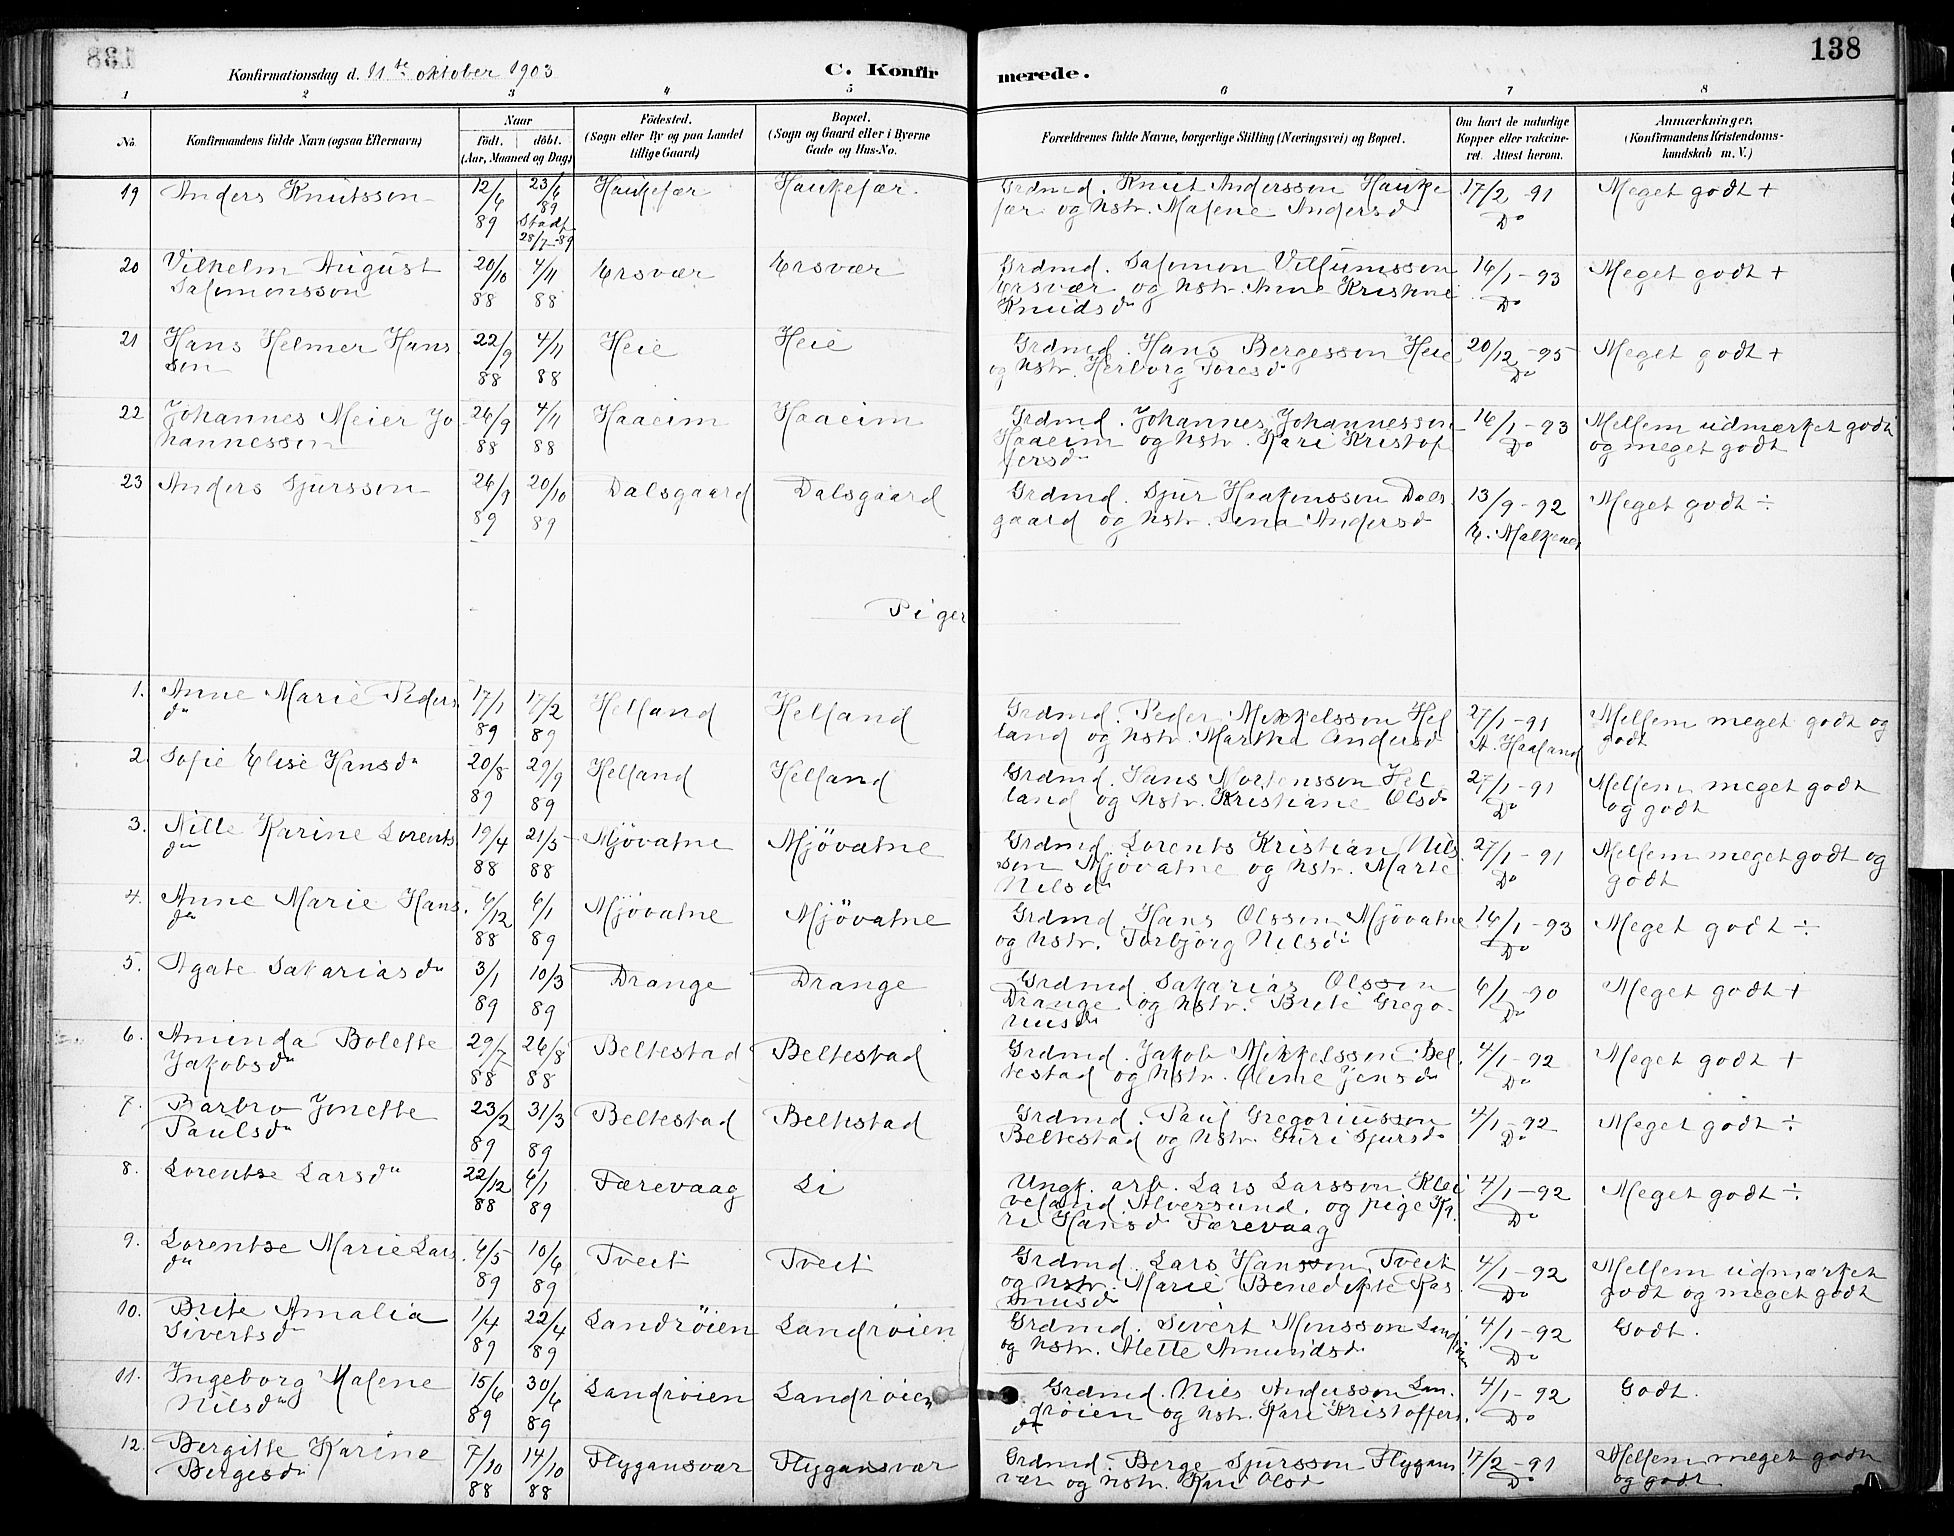 138
Konfirmationsdag d. 11te oktober 1903
C. Konfirmerede.
1 2 3 4 5 6 7 8
No. Konfirmandens fulde Navn (ogsaa Efternavn) Naar födt. döbt. (Aar, Maaned og Dag) Födested. (Sogn eller By og paa Landet tillige Gaard) Bopæl. (Sogn og Gaard eller i Byerne Gade og Hus-No. Forældrenes fulde Navne, borgerlige Stilling (Næringsvei) og Bopæl. Om havt de naturlige Kopper eller vakcineret. Attest herom. Anmærkninger. (Konfirmandens Kristendomskundskab m. V.)
19 Anders Knutsson 12/6 89 23/6 89 Stadf. 28/7-89 Haukefær Haukefær. Grdmd. Knut Andersson Haukefær og hstr. Malene Andersd 17/2-91 Do Meget godt +
20 Vilhelm August Salomonsson 20/10 88 4/11 88 Ersvær Ersvær Grdmd. Salomon Villumsson Ersvær og hstr. Anne Kristine Knudsdr 16/1-93 Do Meget godt +
21 Hans Helmer Hansson 22/9 88 4/11 88 Heie Heie Grdmd. Hans Bergesson Heie og hstr. Herborg Toresd 20/12-95 Do Meget godt +
22 Johannes Meier Johannesson 26/9 88 4/11 88 Haaeim Haaeim Grdmd. Johannes Johannesson Haaeim og hstr. Kari Kristoffersdr 16/1-93 Do Mellem udmærket godt og meget godt
23 Anders Sjursson 26/9 89 20/10 89 Dalsgaard Dalsgaard Grdmd. Sjur Haakonsson Dalsgaard og hstr. Sina Andersd 13/9-92 Meget godt ÷
Piger
1. Anne Marie Pedersdr 17/1 89 17/2 89 Helland Helland Grdmd. Peder Mikkelsson Helland og hstr. Martha Andersd 27/1-91 A. Haaland Mellem meget godt og godt
2. Sofie Elise Hansdr 20/8 89 29/9 89 Helland Helland Grdmd. Hans Mortensson Helland og hstr. Kristiane Olsdr 27/1-91 Do Mellem meget godt og godt
3. Nille Karine Lorentsdr 19/4 88 21/5 88 Mjövatne Mjövatne Grdmd. Lorents Kristian Nilsson Mjövatne og hstr. Marte Nilsdr 27/1-91 Do Mellem meget godt og godt
4. Anne Marie Hansdr 6/12 88 6/1 89 Mjövatne Mjövatne Grdmd. Hans Olsson Mjövatne og hstr. Torbjörg Nilsdr 16/1-93 Do Meget godt ÷
5. Agate Sakariasdr 3/1 89 10/3 89 Drange Drange Grdmd. Sakarias Olsson Drange og hstr. Brite Gregoriusdr 6/1-90 Do Meget godt +
6. Aminda Bolette Jakobsdr 29/7 88 26/8 88 Beltestad Beltestad Grdmd. Jakob Mikkelsson Beltestad og hstr. Oline Jensdr 4/1-92 Do Meget godt +
7. Barbro Jonette Paulsdr 23/2 89 31/3 89 Beltestad Beltestad Grdmd. Paul Gregoriusson Beltestad og hstr. Guri Sjursdr 4/1-92 Do Meget godt ÷
8. Lorentse Larsdr 22/12 88 6/1 89 Færevaag Li Ungk. arb. Lars Larsson Kleiveland, Alversund, og pige Kari Hansd Færevaag 4/1-92 Do Meget godt ÷
9. Lorentse Marie Larsdr 6/5 89 10/6 89 Tveit Tveit Grdmd. Lars Hansson Tveit og hstr. Marie Benedikte Rasmusdr 4/1-92 Do Mellem udmærket godt og meget godt
10. Brite Amalia Sivertsdr 1/4 89 22/4 89 Landröien Landröien Grdmd. Sivert Monsson Landröien og hstr. Alette Amundsdr 4/1-92 Do Godt.
11. Ingeborg Malene Nilsdr 15/6 89 30/6 89 Landröien Landröien Grdmd. Nils Andersson Landröien og hstr. Kari Kristoffersd 4/1-92 Do Godt.
12. Bergitte Karine Bergesdr 7/10 88 14/10 88 Flygansvær Flygansvær Grdmd. Berge Sjursson Flygansvær og hstr. Kari Olsd 17/2-91 Do Mellem meget godt og godt